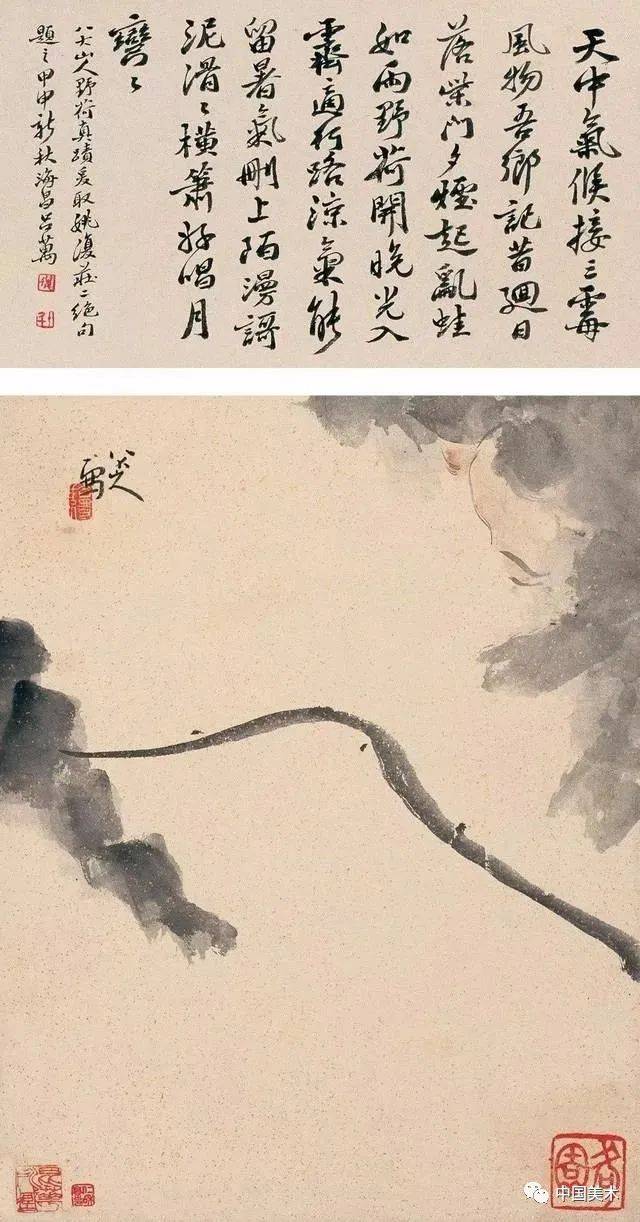 天中氣候接三霉
風物吾鄉記昔迴日
落柴門夕煙起亂蛙
如雨野荷開晚光入
霽適行路涼氣能
留暑氣刪上陌漫謌
泥滑〻橫簫好唱月
彎〻
八大山人野荷真蹟爰取姚復莊二絕句
題之甲申新秋海昌呂萬
八大
寫
中国美术